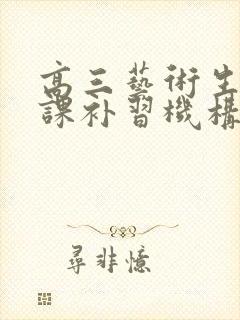 高三藝術生
課补習機構
尋非憶